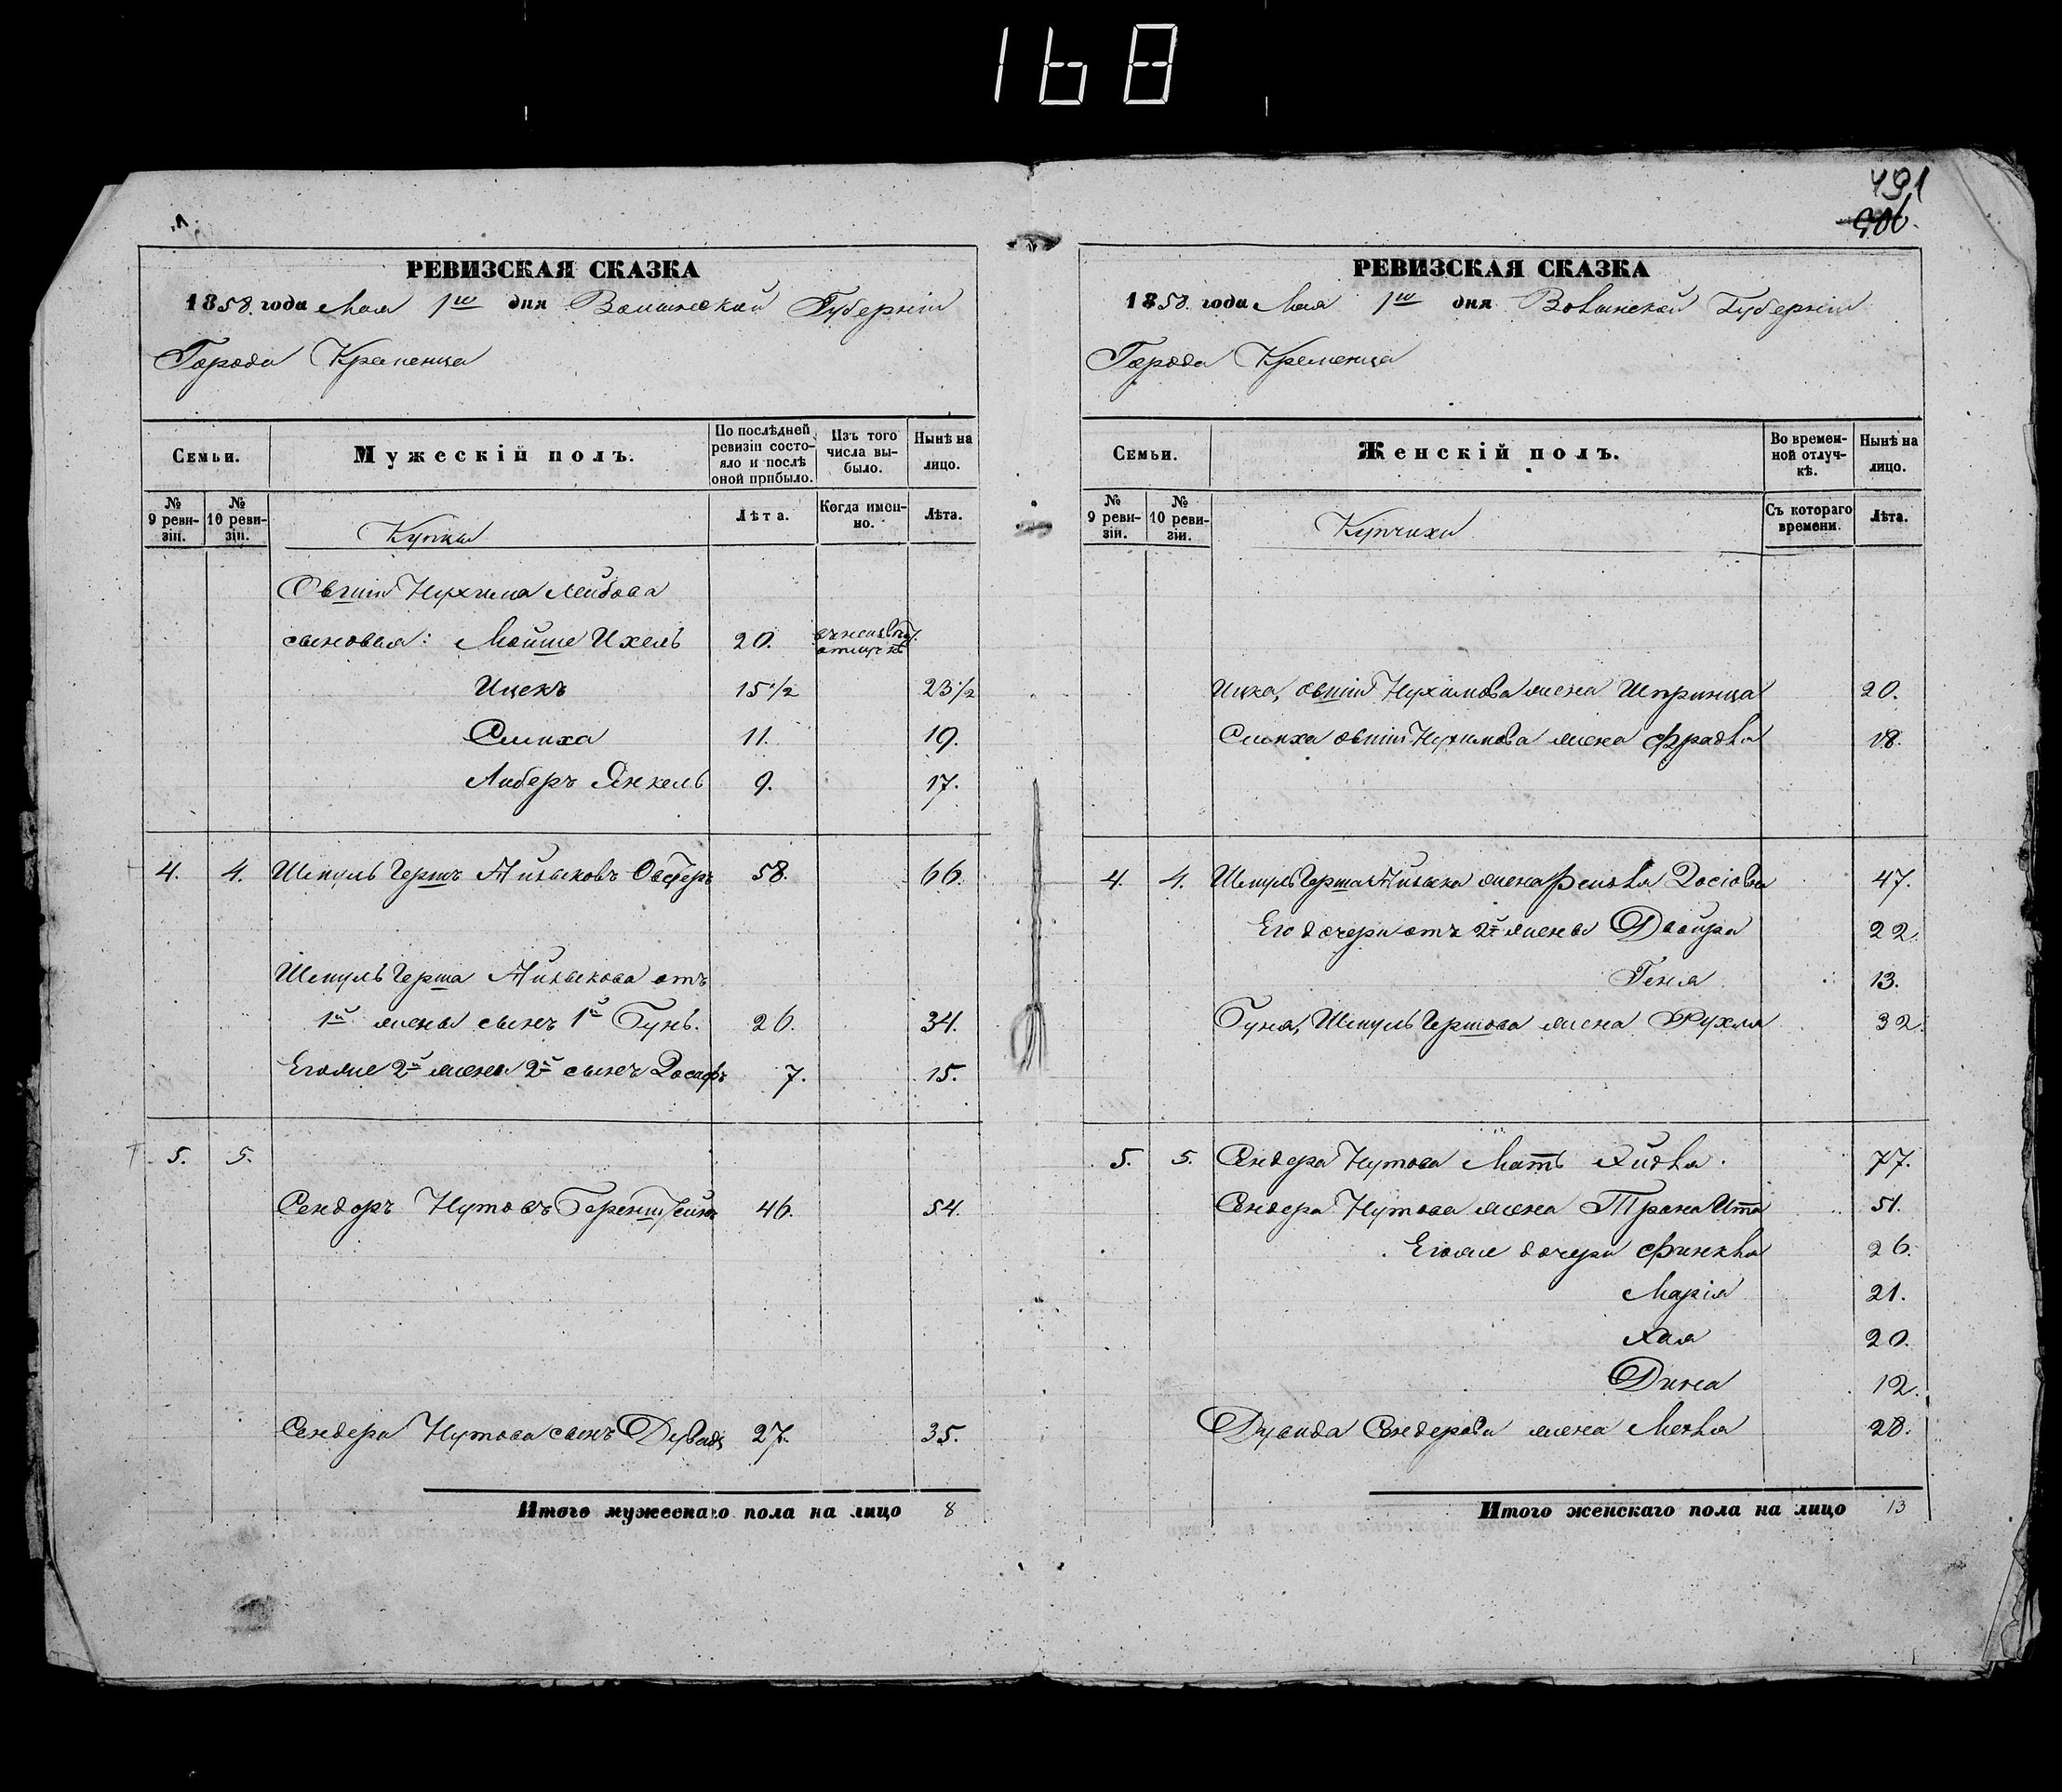 168
491
406.
РЕВИЗСКАЯ СКАЗКА
1858. года Мая 1го дня Волынской Губерніи
Города Кременца
Семьи.
Мужескій полъ.
По послѣдней ревизіи состояло и послѣ оной прибыло.
Изъ того числа выбыло.
Нынѣ на лицо.
№ 9 ревизіи.
№ 10 ревизіи.
Купцы
Лѣта.
Когда именно.
Лѣта.
Овшія Нухима Лейбова
сыновья: Мойше Ихель 20.
Ицекъ 15 1/2 23 1/2
Симха 11. 19.
Либеръ Янкель 9. 17.
4. 4. Шмуль Гершъ 58. 66.
Шмуль Герша отъ
1й жены сынъ 1й Гунь. 26. 34.
Егоже 2й жены 2й сынъ Іосифъ 7. 15.
5. 5.
Сендоръ Нутовъ Горенштейнъ 46. 54.
Сендера Нутова сынъ Дувидъ 27. 35.
Итого мужескаго пола на лицо 8
РЕВИЗСКАЯ СКАЗКА
1858. года Мая 1го дня Волынской Губерніи
Города Кременца
Семьи.
Женскій полъ.
Во временной отлучкѣ.
Нынѣ на лицо.
№ 9 ревизіи.
№ 10 ревизіи.
Купчихи
Съ котораго времени.
Лѣта.
Ицка, Овшія Нухимова жена Шпринца 20.
Симха Овшія Нухимова жена Фрадля 18.
4. 4. Шмуль Герша жена 47.
Его дочери отъ 2й жены Двойра 22.
Геня 13.
Гуня, Шмуль Гершова жена Рухля 32.
5. 5. Сендера Нутова Мать Хидля. 77.
Сендера Нутова жена Трана Ита 51.
Егоже дочери Финкля 26.
Марія 21.
Хая 20.
Дина 12.
Дувида Сендерова жена 28.
Итого женскаго пола на лицо 13